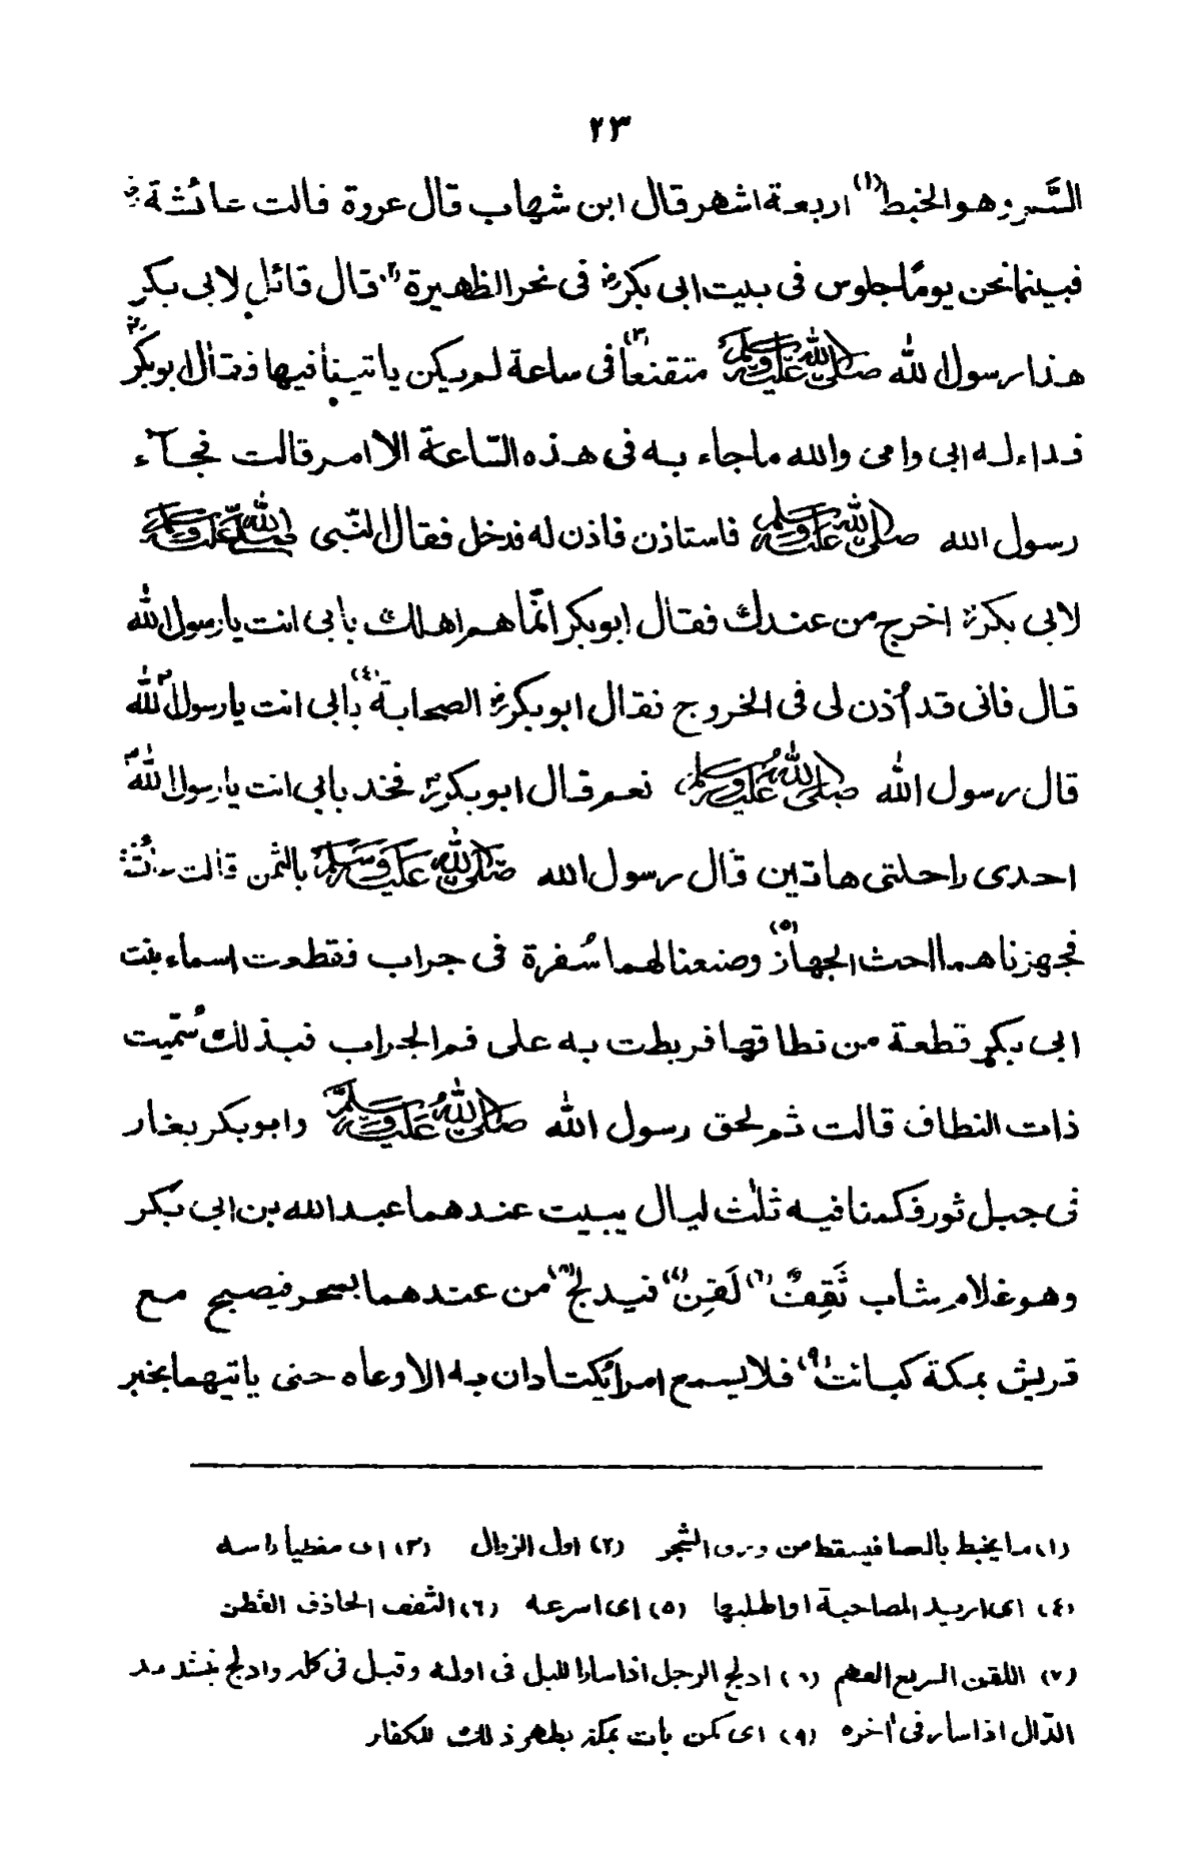 ٢٣
السَّمر وهو الخبط(١) اربعة اشهر قال ابن شهاب قال عروة قالت عائشة رض
فبينما نحن يومًا جلوس فى بيت ابى بكر رض فى نحر الظهيرة(٢) قال قائل لابى بكر
هذا رسول الله صلى الله عليه وسلم متقنعًا(٣) فى ساعة لم يكن ياتينا فيها فقال ابو بكر رض
فداء له ابى وامى والله ما جاء به فى هذه السّاعة الا امر قالت فجآء
رسول الله صلى الله عليه وسلم فاستاذن فاذن له فدخل فقال النّبى صلى الله عليه وسلم
لابى بكر رض اخرج من عندك فقال ابو بكر انّما هم اهلك بابى انت يا رسول الله
قال فانى قد أُذن لى فى الخروج فقال ابو بكر رض الصحابة(٤) بابى انت يا رسول الله
قال رسول الله صلى الله عليه وسلم نعم قال ابو بكر رض فخذ بابى انت يا رسول الله
احدى راحلتى هاتين قال رسول الله صلى الله عليه وسلم بالثمن قالت عائشة
فجهزناهما احث الجهاز(٥) وصنعنا لهما سُفرة فى جراب فقطعت اسماء بنت
ابى بكر قطعة من نطاقها فربطت به على فم الجراب فبذلك سُمّيت
ذات النطاق قالت ثم لحق رسول الله صلى الله عليه وسلم وابو بكر بغار
فى جبل ثور فكمنا فيه ثلٰث ليال يبيت عندهما عبد الله بن ابى بكر
وهو غلام شاب ثَقِفٌ(٦) لَقِنٌ(٧) فيدلج(٨) من عندهما بسحر فيصبح مع
قريش بمكة كبائت(٩) فلا يسمع امرا يُكتادان به الا وعاه حتى ياتيهما بخبر
(١) ما يخبط بالعصا فيسقط من ورق الشجر (٢) اول الزوال (٣) اى مغطيا راسه
(٤) اى اريد المصاحبة او اطلبها (٥) اى اسرعه (٦) الثقف الحاذق الفطن
(٧) اللقن السريع الفهم (٨) ادلج الرجل اذا سار الليل فى اوله وقيل فى كله وادلج بتشديد
الدّال اذا سار فى اٰخره (٩) اى كمن بات بمكة يظهر ذلك للكفار